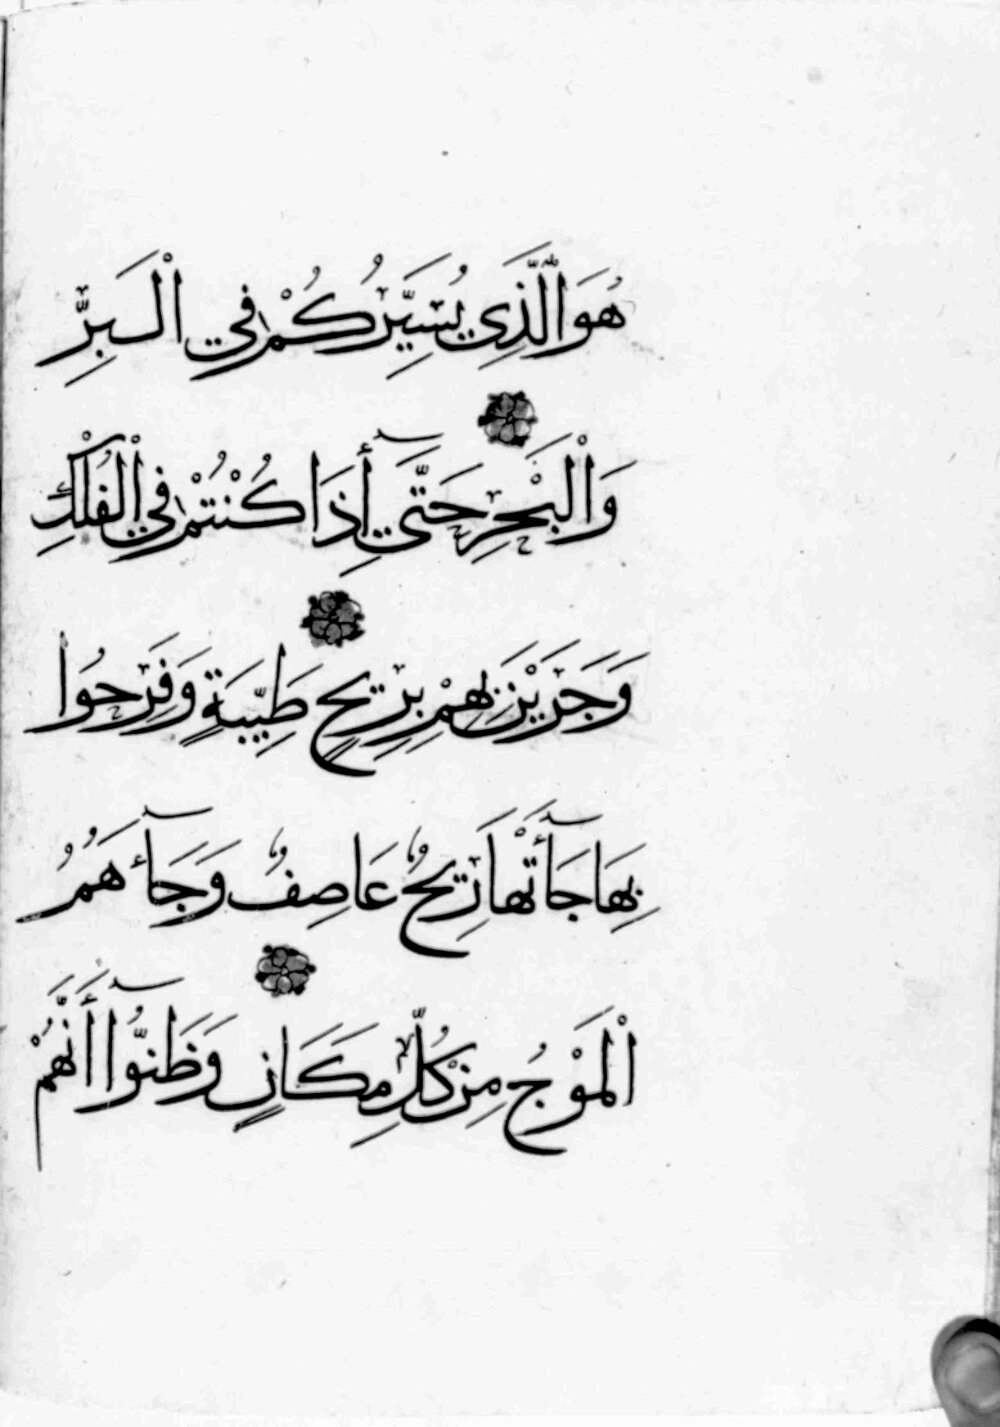 هُوَ الَّذِي يُسَيِّرُكُمْ فِي الْبَرِّ
وَالْبَحْرِ حَتَّىٰ إِذَا كُنْتُمْ فِي الْفُلْكِ
وَجَرَيْنَ بِهِمْ بِرِيحٍ طَيِّبَةٍ وَفَرِحُوا
بِهَا جَآءَتْهَا رِيحٌ عَاصِفٌ وَجَآءَهُمُ
الْمَوْجُ مِنْ كُلِّ مَكَانٍ وَظَنُّوٓا أَنَّهُمْ